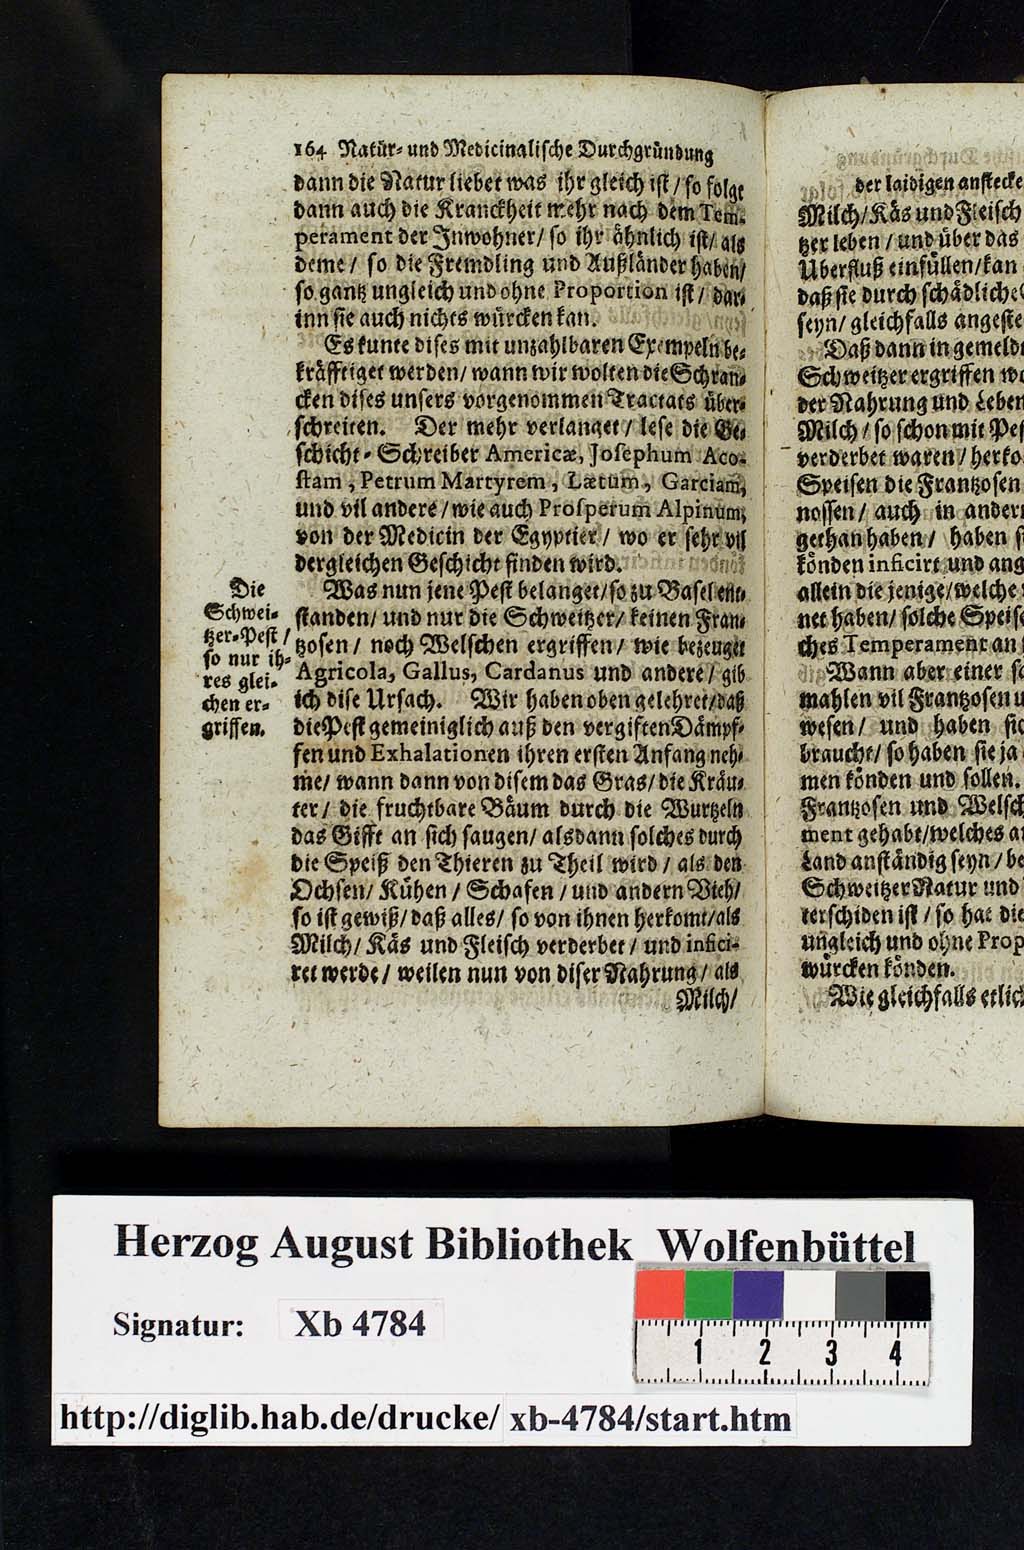 164 Natür- und Medicinalische Durchgründung
dann die Natur liebet was ihr gleich ist / so folgt
dann auch die Kranckheit mehr nach dem Tem-
perament der Inwohner / so ihr ähnlich ist / als
deme / so die Fremdling und Außländer haben /
so gantz ungleich und ohne Proportion ist / dar-
inn sie auch nichts würcken kan.
Es kunte dises mit unzahlbaren Exempeln be-
kräfftiget werden / wann wir wolten die Schran-
cken dises unsers vorgenommen Tractats über-
schreiten. Der mehr verlanget / lese die Ge-
schicht-Schreiber Americæ, Josephum Aco-
stam, Petrum Martyrem, Lætum, Garciam,
und vil andere / wie auch Prosperum Alpinum,
von der Medicin der Egyptier / wo er sehr vil
dergleichen Geschicht finden wird.
Die
Schwei-
tzer-Pest /
so nur ih-
res glei-
chen er-
griffen.
Was nun jene Pest belanget / so zu Basel ent-
standen / und nur die Schweitzer / keinen Fran-
tzosen / noch Welschen ergriffen / wie bezeuget
Agricola, Gallus, Cardanus und andere / gib
ich dise Ursach. Wir haben oben gelehret / daß
die Pest gemeiniglich auß den vergiften Dämpf-
fen und Exhalationen ihren ersten Anfang neh-
me / wann dann von disem das Gras / die Kräu-
ter / die fruchtbare Bäum durch die Wurtzeln
das Gifft an sich saugen / alsdann solches durch
die Speiß den Thieren zu Theil wird / als den
Ochsen / Kühen / Schafen / und andern Vieh /
so ist gewiß / daß alles / so von ihnen herkomt / als
Milch / Käs und Fleisch verderbet / und infici-
ret werde / weilen nun von diser Nahrung / als
Milch /
der laidigen anstecke
Milch / Käs und Fleisch
tzer leben / und über das
Überfluß einfüllen / kan
daß sie durch schädliche
seyn / gleichfalls angeste
Daß dann in gemeldt
Schweitzer ergriffen wo
der Nahrung und Leben
Milch / so schon mit Pes
verderbet waren / herko
Speisen die Frantzosen
nossen / auch in andern
gethan haben / haben s
könden inficirt und ang
allein die jenige / welche
net haben / solche Speise
ches Temperament an
Wann aber einer sa
mahlen vil Frantzosen u
wesen / und haben sic
braucht / so haben sie ja
men könden und sollen.
Frantzosen und Welsch
ment gehabt / welches a
Land anständig seyn / be
Schweitzer Natur und
terschiden ist / so hat die
ungleich und ohne Prop
würcken könden.
Wie gleichfalls etlich
Herzog August Bibliothek Wolfenbüttel
Signatur: Xb 4784
1 2 3 4
http://diglib.hab.de/drucke/ xb-4784/start.htm